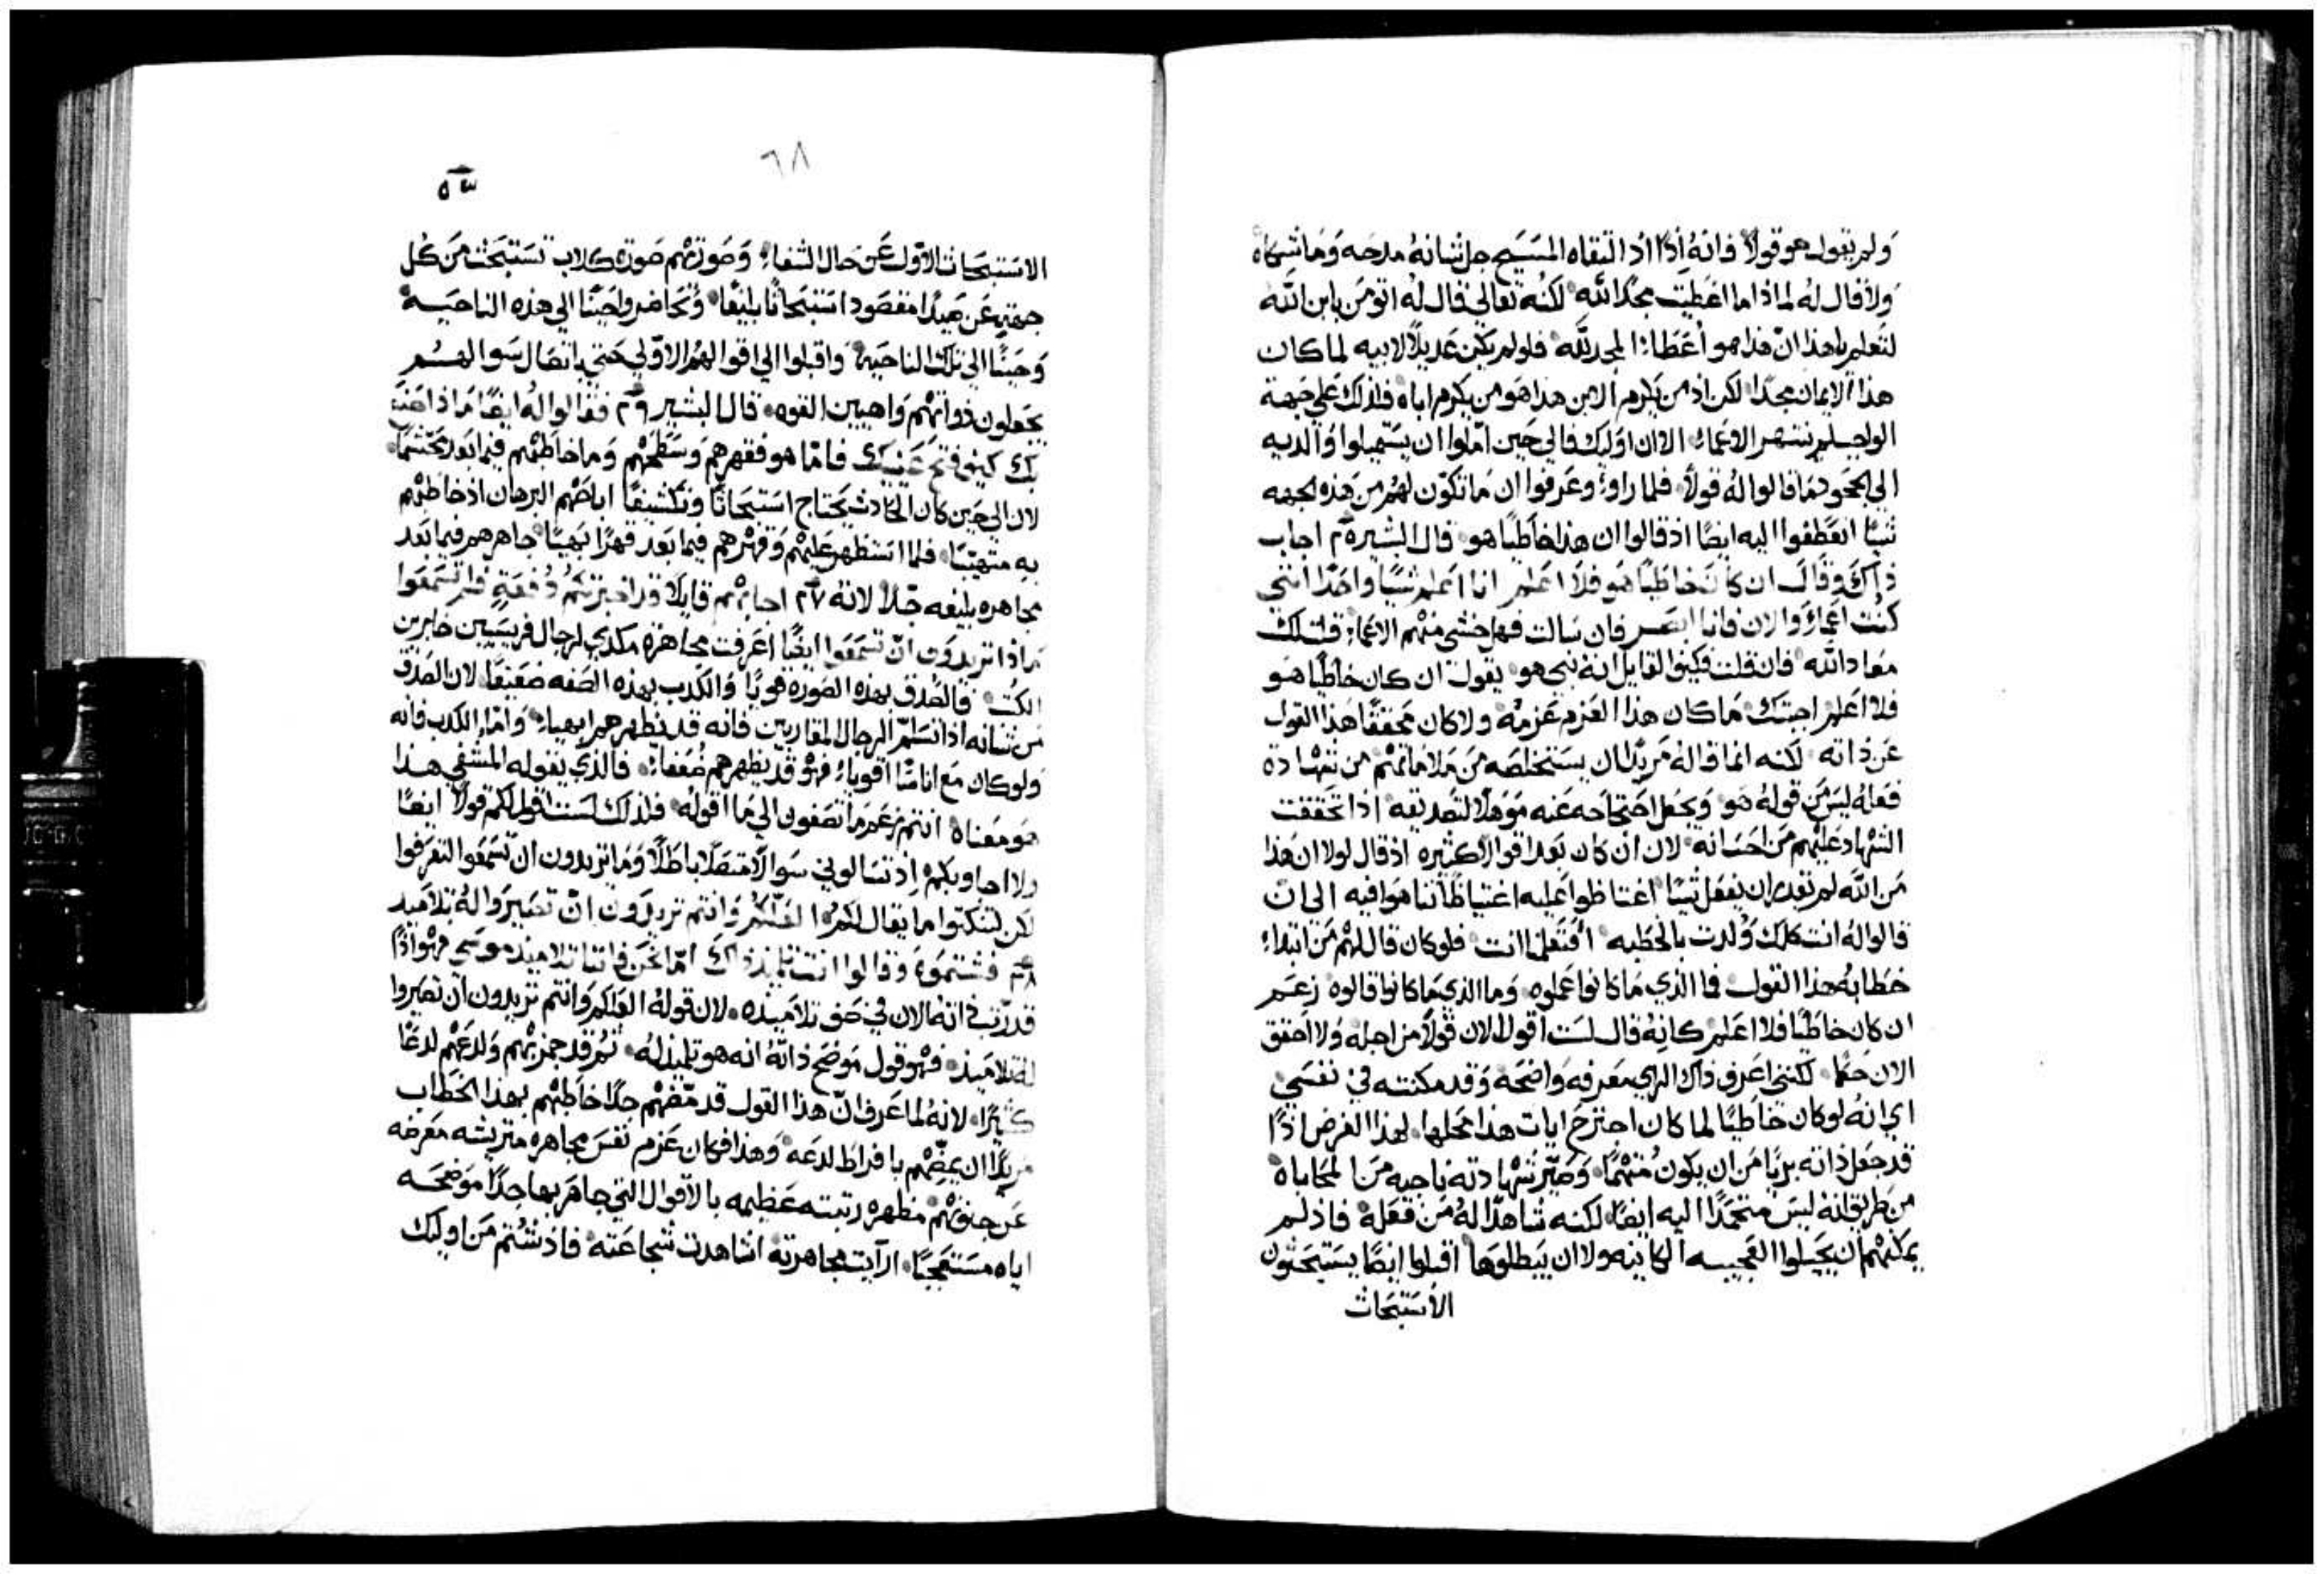 ولم يقول هو قولاً فانه اذًا اذ التقاه المسيح جل ثنانه مدحه وما شكاه
ولا قال له لماذا ما اعطيت مجدًا لله لكنه تعالي قال له اتومن بابن الله
لتعلم بهذا ان هذا هو اعطاء المجد لله فلو لم يكن عديلاً لابيه لما كان
هذا الايمان مجدًا لكن اذ من يكرم الابن هذا هو من يكرم اباه فلذلك علي جهة
الواجب لم ينتهر الاعماء الا ان اوليك فالي حين املوا ان يستميلوا والديه
الي الجحود فما قالوا له قولاً فلما راوا وعرفوا ان ما تكون لهم من هذه الجهه
شيًا انعطفوا اليه ايضًا اذ قالوا ان هذا خاطيًا هو قال البشير ه٢ اجاب
ذاك وقال ان كان خاطيًا هو فلا اعلم انا اعلم شيًا واحدًا انني
كنت اعماء والان فانا ابصر فان سالت فهل خشي منهم الاعماء قلت لك
معاد الله فان قلت فكيف القايل انه نبي هو يقول ان كان خاطيًا هو
فلا اعلم اجبتك ما كان هذا العزم عزمه ولا كان محققًا هذا القول
عن ذاته لكنه انما قاله مريدًا ان يستخلصه من ملاماتهم من شهادة
فعله ليس من قوله هو ويجعل احتجاجه عنه موهلاً لتصديقه اذا تحققت
الشهاد عليهم من احسانه لان ان كان بعد اقوال كثيره اذ قال لولا ان هذا
من الله لم يقدر ان يفعل شيًا اغتاظوا عليه اغتياظًا تناهوا فيه الي ان
قالوا له انت كلك ولدت بالخطيه افتعلمنا انت فلو كان قال لهم من ابتداء
خطابه هذا القول فما الذي ما كانوا عملوه وما الذي ما كانوا قالوه زعم
ان كان خاطيًا فلا اعلم كانه قال لست اقول الان قولاً من اجله ولا احقق
الان حكمًا لكنني اعرف ذاك الراي معرفه واضحة وقد مكنته في نفسي
اي انه لو كان خاطيًا لما كان اجترح ايات هذا محلها لهذا الغرض اذًا
قد جعل ذاته بريًا من ان يكون متهمًا وصير شهادته ناجيه من المحاباه
من طريق انه ليس متحمدًا اليه ايضًا لكنه شاهدًا له من فعله فاذ لم
يمكنهم ان يحيلوا العجيبه الكاينه ولا ان يبطلوها اقبلوا ايضًا يستبحثون
الاستبحاث
٦٨
الاستبحاث الاول عن حال الشفاء وصورتهم صورة كلاب تستبحث من كل
جهته عن صيدًا مقصود استبحاثًا بليغًا وتحاضر واحينًا الي هذه الناحيه
وحينًا الي تلك الناحيه واقبلوا الي اقوالهم الاولي حتي باتصال سوالهم
يجعلون ذواتهم واهيين القوه قال البشير ٢٦ فقالوا له ايضًا ماذا صنع
بك كيف فتح عينيك فاما هو فقهرهم وسطحهم وما خاطبهم فيما بعد محتشمًا
لان الي حين كان الحادث يحتاج استبحاثًا وتكشيفًا اباحهم البرهان اذ خاطبهم
به متهيبًا فلما استظهر عليهم وقهرهم فيما بعد قهرًا بهيًا جاهرهم فيما بعد
مجاهره بليغه جدًا لانه ٢٧ اجابهم قايلاً قد اخبرتكم دفعة فلم تسمعوا
ماذا تريدون ان تسمعوا ايضًا اعرفت مجاهرة مكدي لرجال فريسيين خابرين
الكتب فالصدق بهذه الصورة قويًا والكدب بهذه الصفه ضعيفًا لان الصدق
من شانه اذا تسلم الرجال المقاريين فانه قد يظهرهم ابهياء واما الكدب فانه
ولو كان مع اناسًا اقوياء فهو قد يظهرهم ضعفاء فالذي يقوله المشفي هذا
هو معناه انتم زعم ما تصغون الي ما اقوله فلذلك لست اقول لكم قولاً ايضًا
ولا اجاوبكم اذ تسالوني سوالاً متصلاً باطلاً وما تريدون ان تسمعوا لتعرفوا
لكن لتنكتوا ما يقال لكم العلكم وانتم تريدون ان تصيروا له تلاميد
٢٨ فشتموه وقالوا انت تلميذ ذاك اما نحن فاننا تلاميذ موسي فهو اذًا
قد رتب ذاته الان في صف تلاميذه لان قوله العلكم وانتم تريدون ان تصيروا
له تلاميذ فهو قول موضح ذاته انه هو تلميذ له ثم قد جمز بهم ولدعهم لدعًا
كثيرًا لانه لما عرف ان هذا القول قد مضهم جدًا خاطبهم بهذا الخطاب
مريدًا ان يمضهم بافراط لدعه وهذا فكان عزم نفس مجاهره متريشه معرضه
عن جنفهم مظهره رتبته عظيمه بالاقوال التي جاهر بها جدًا موضحه
اياه مستعجبًا ارايت مجاهرته اشاهدت شجاعته فاذ شتم من اوليك